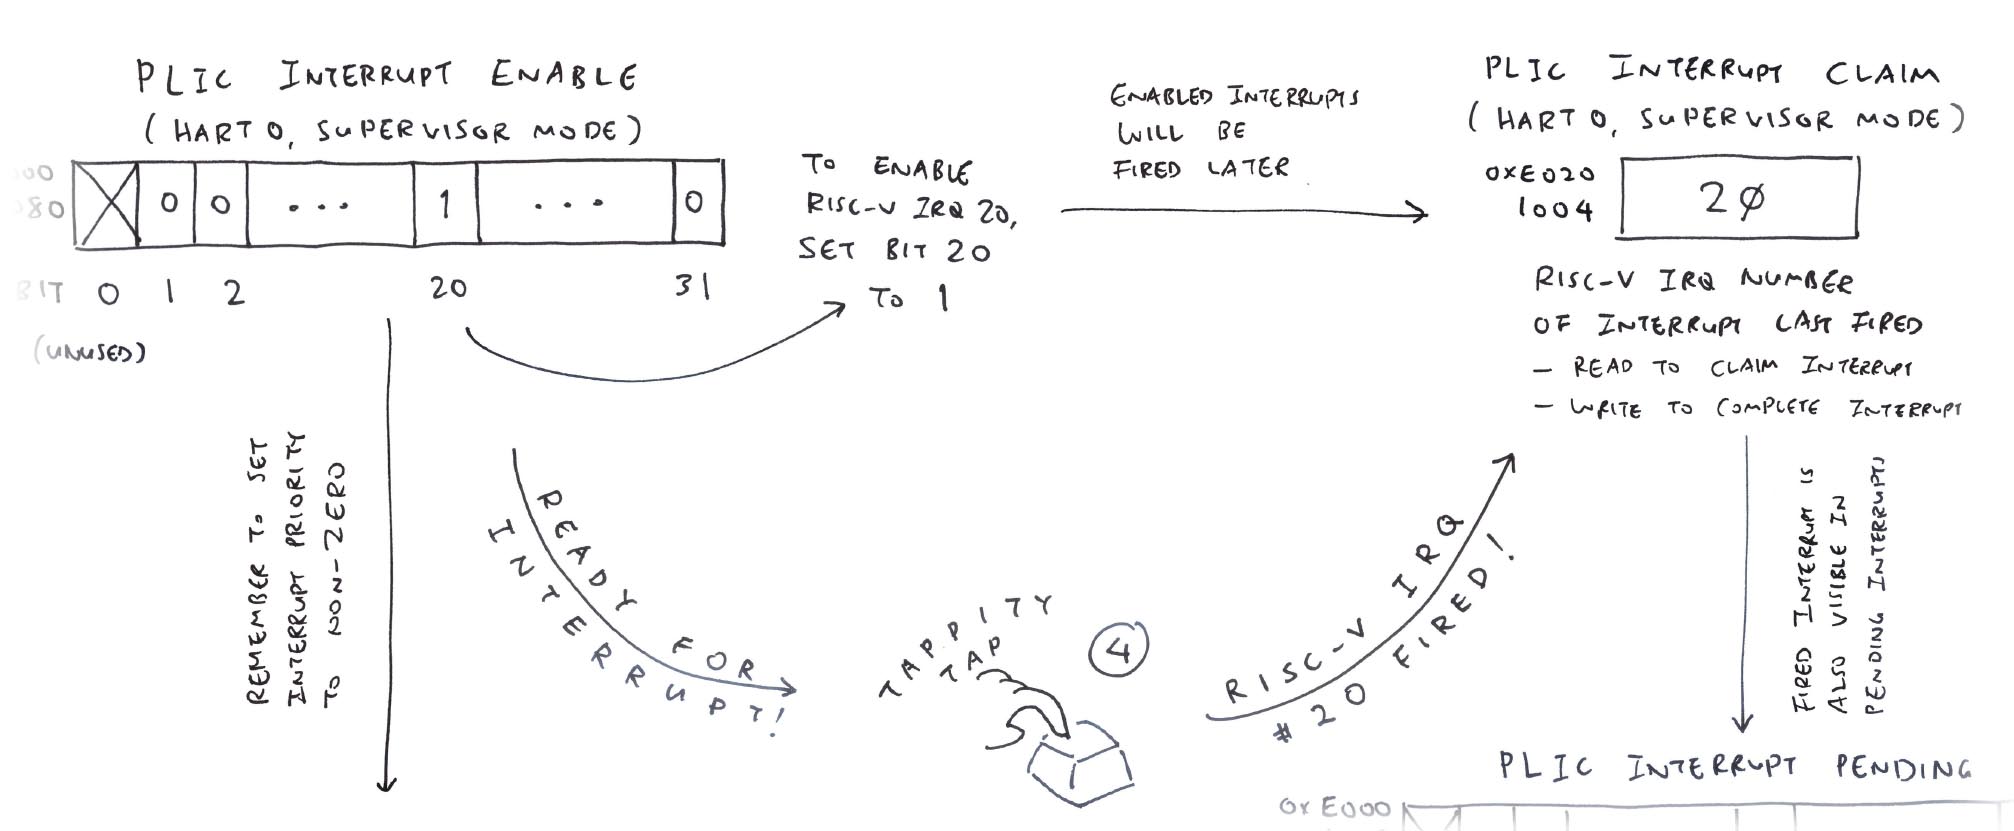 PLIC INTERRUPT ENABLE
(HART 0, SUPERVISOR MODE)
00
80
0 0 ... 1 ... 0
BIT 0 1 2 20 31
(UNUSED)
TO ENABLE
RISC-V IRQ 20,
SET BIT 20
TO 1
ENABLED INTERRUPTS
WILL BE
FIRED LATER
PLIC INTERRUPT CLAIM
(HART 0, SUPERVISOR MODE)
0XE020
1004
20
RISC-V IRQ NUMBER
OF INTERRUPT LAST FIRED
- READ TO CLAIM INTERRUPT
- WRITE TO COMPLETE INTERRUPT
REMEMBER TO SET
INTERRUPT PRIORITY
TO NON-ZERO
READY FOR
INTERRUPT!
TAPPITY
TAP
4
RISC-V IRQ
#20 FIRED!
FIRED INTERRUPT IS
ALSO VISIBLE IN
PENDING INTERRUPTS
PLIC INTERRUPT PENDING
0XE000